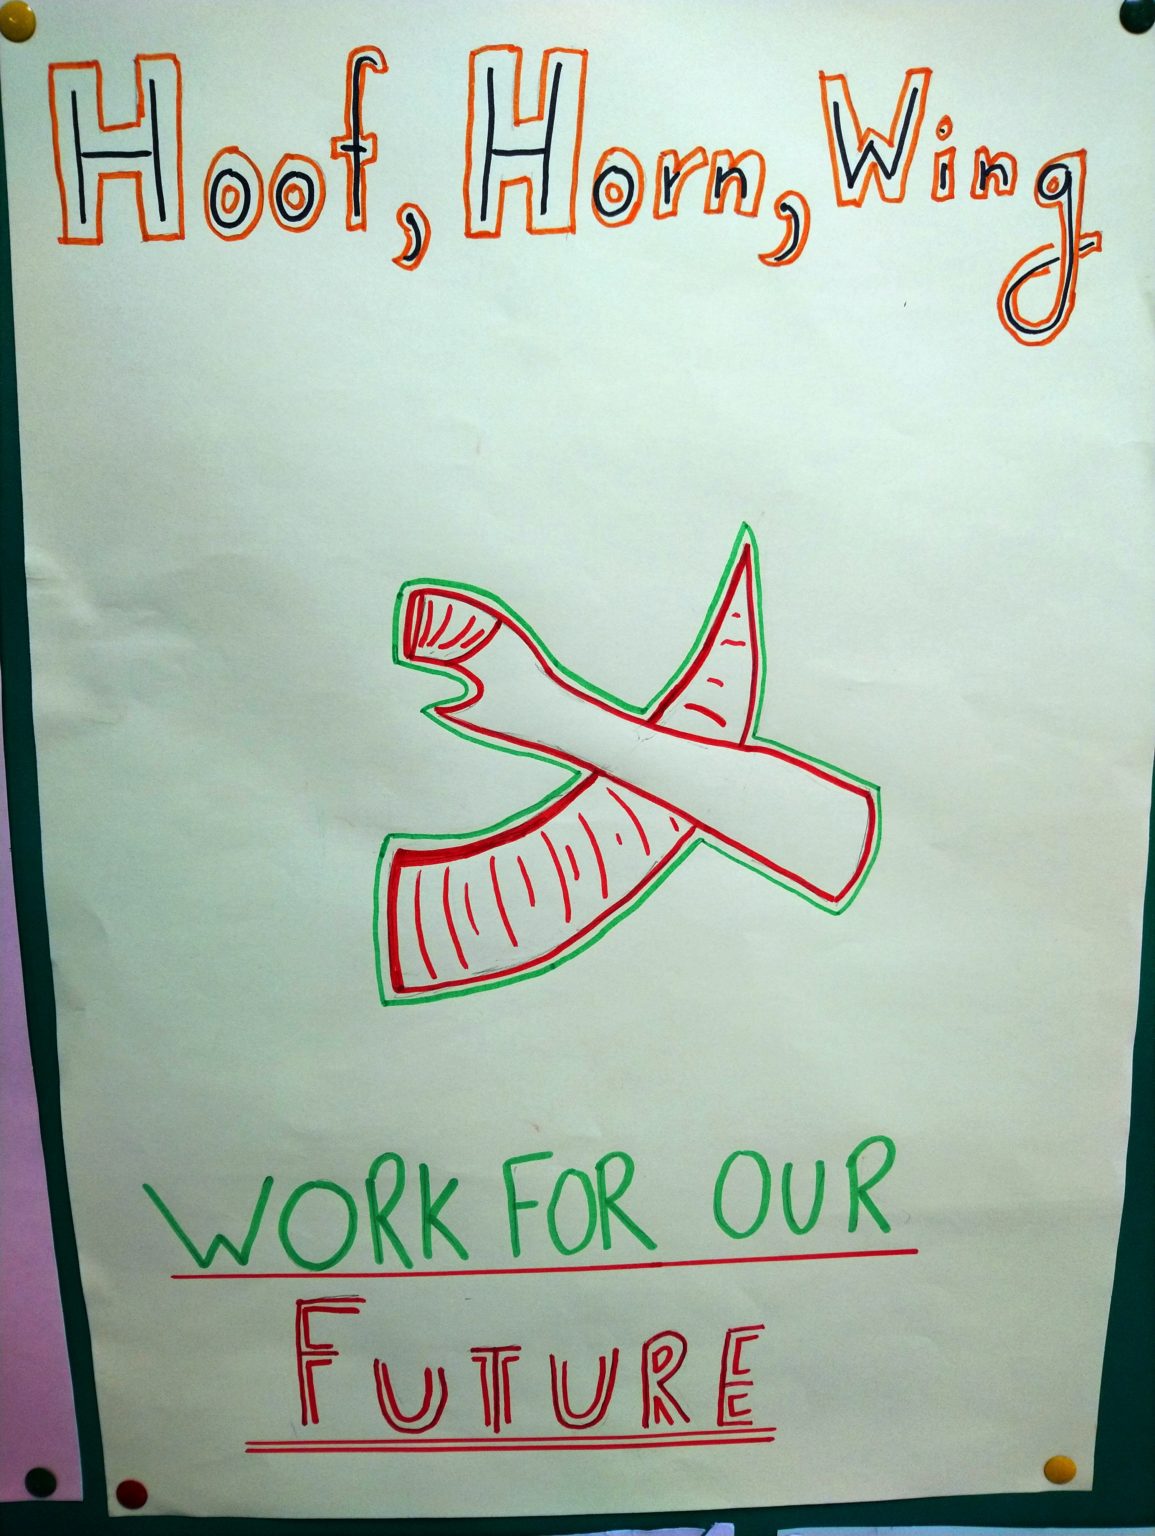 Hoof, Horn, Wing
WORK FOR OUR
FUTURE